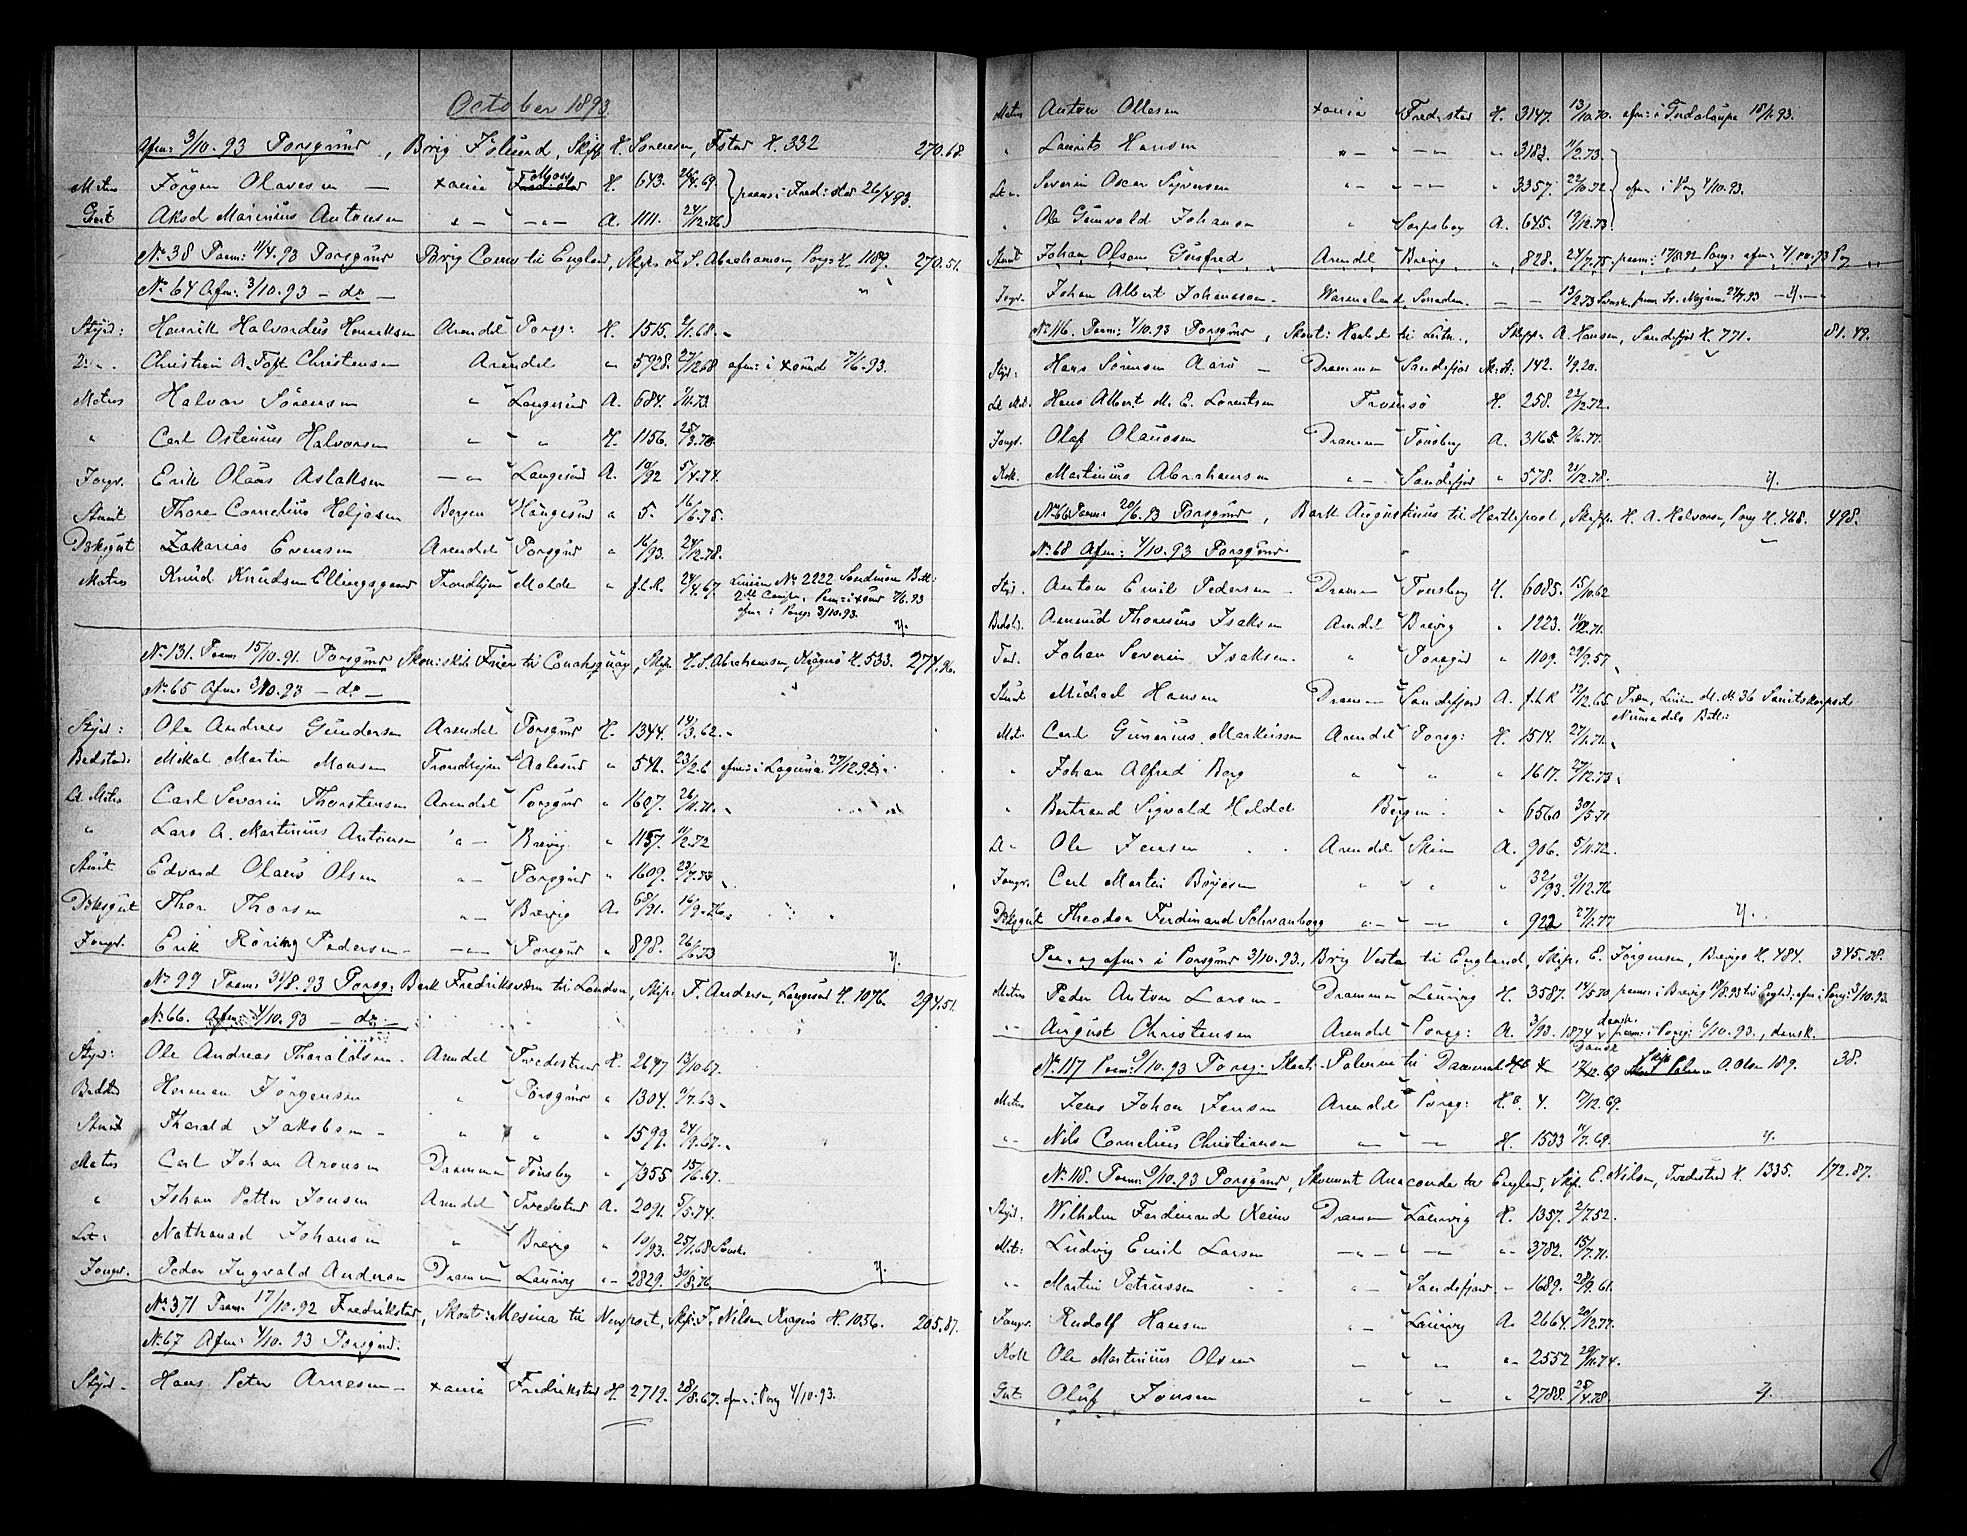 October 1893
Afm: 3/10.93 Porsgrund, Brig Skipp H. Sørensen, Fstad H. 332 270.68.
Matros Jörgen Olavesen — xania Fredrikstad H. 643. 26/4.69. paam: i Fred:stad 26/4 93.
Gut Aksel Marinius Antonsen " — " — A. 1111. 24/12.76
No 38 Paam: 11/4.93 Porsgrund Brig til England, Skip. S. Abrahamsen, Pors: H. 1189. 270.51.
No 64 Afm: 3/10.93 — do —
Styrd: Henrik Halvordius Henriksen Arendal Porsg: H. 1515. 2/1.68.
2: Christian A. Toft Christensen Arendal " 5928. 27/12.68 afm: i xsund 7/6.93.
Matros Halvor Sörensen " Langesund A. 684. 4/11.73.
" Carl Ostenius Halvorsen " " H. 1156. 25/3.70.
Jungm. Erik Olaus Aslaksen — " — Langesund A. 10/92 5/4.74.
Stuert Thore Cornelius Heljesen Bergen Haugesund " 5. 16/6.75.
Dæksgut Zakarias Evensen Arendal Porsgrund " 16/93. 24/12.78.
Matros Knud Knudsen Ellingsgaard Trondhjem Molde " f.l.R. 24/4.67. Linien No 2222 Søndmøre Batl:
2det Comp. Paam: i xsund 7/6.93
afm: i Pors: 3/10.93.
No 131. Paam 15/10.91. Porsgrund Skonskib Freir til Skip. H. S. Abrahamsen, Kragerø H. 533. 274.96.
No 65 Afm: 3/10.93 — do —
Styrd: Ole Andreas Gundersen Arendal Porsgrund H. 1344. 14/3.62.
Bedstd: Mikal Martin Monsen Trondhjem Aalesund " 546. 23/2.6 afm: i Laguna 27/12.92.
Lt Matros Carl Severin Thorstensen Arendal Porsgrund " 1607. 26/11.71.
" Lars A. Martinius Antonsen " — Brevig " 1157. 11/2.72
Stuert Edvard Olaus Olsen " — Porsgrund " 1609. 23/7.73
Dæksgut Thor Thorsen " — Brevig A. 68/91. 16/9.76.
Jungm. Erik Röring Pedersen — — " — Porsgrund " 898. 26/6.73
No 99 Paam: 31/8.93 Porsg: Bark Fredriksværn til London, Skip: T. Andersen, Langesund H. 1076. 294.51.
No 66. Afm: 4/10.93 — do —
Styrd: Ole Andreas Tharaldsen. Arendal Tvedestrand H. 2647 13/10.67.
Bedstd Herman Jörgensen " Porsgrund " 1304. 9/7.63
Stuert Tharald Jakobsen — " " " 1599. 24/9.67.
Matros Carl Johan Aronsen Drammen Tønsberg " 7355 15/6.67.
" Johan Petter Jensen Arendal Tvedestrand A. 2091. 5/5.74.
Let: Nathanael Johansen " Brevig " 10/93. 25/1.68 Svensk.
Jungm. Peder Ingvald Andersen Drammen Laurvig " 2829. 30/8.76
No 371 Paam: 17/10.92 Fredrikstad, Skont: Mesina til Newport, Skip: T. Nilsen Kragerø H. 1056. 205.87.
No 67 Afm: 4/10.93 Porsgrund.
Styrd. Hans Peter Arnesen — xania Fredrikstad H. 2719. 28/8.67. afm: i Porsg 4/10.93.
Matros Anton Olesen xania Fredrstad H. 3147. 13/10.70. afm: i Gudaloupe 18/1.93.
" Laurits Hansen " — " — " — " 3183. 11/2.73.
Lt " Severin Oscar Syversen " — " — " 3357. 22/10.72 afm: i Porsg 4/10.93.
" Ole Gunvald Johansen " Sarpsborg A. 645. 19/12.73.
Stuert Johan Olsen Gusfred Arendal Brevig " 828. 24/7.75 paam: 17/8.92 Porsg: afm: 4/10.93 Porsg
Jungm. Johan Albert Johansson — Warmeland Sweden. — — 13/2.73 Svensk.
No 116. Paam: 4/10.93 Porsgrund, Skont: til Skipp. A. Hansen, Sandefjord H. 771. 81.49.
Styrd: Hans Sörensen Aarø — Drammen Sandefjord 142. 1/9.20.
Lt Mat. Hans Albert M. E. Lorentsen Tromsö H. 258. 22/12.72.
Jungm. Olaf Olausen Drammen Tönsberg A. 3165. 9/6.77.
Kok. Martinius Abrahamsen " — Sandefjord " 578. 21/12.78.
No 66 Paam: 20/6.93 Porsgrund, Bark Augustinus til Hartlepool, Skipp. H. A. Halvorsen, Porsg H. 468. 498.
No 68 Afm: 4/10.93 Porsgrund
Styrd. Anton Emil Pedersen — Drammen Tönsberg H. 6085. 15/10.62
Bedstd. Amund Thoresius Isaksen Arendal Brevig " 1223. 11/12.71.
Johan Severin Isaksen. " Porsgrund " 1109. 29/9.57
Stuert Michael Hansen Drammen Sandefjord A. f.l.R 12/12.65 Træn, Linien M. N. 36 Sanitetskorpset
Numedals Batl:
Mat. Carl Gunerius Markussen Arendal Porsg: H. 1514. 27/1.71.
" Johan Alfred Berg " " " 1617. 27/12.73
" Bertrand Sigvald Heldal Bergen " 6560 30/5.71
Lt " Ole Jensen Arendal Skien A. 906. 5/11.72.
Jungm. Carl Martin Børjesen " " " 32/93. 9/12.76
Dæksgut Theodor Ferdinand Schvanborg " — — " — " 922 27/1.77
Paa- og afm: i Porsgrund 3/10.93., Brig Vesta til England, Skip. E. Jørgensen, Brevig H. 484. 345.78.
Matros Peder Anton Larsen — Drammen Laurvig H. 3587. 14/5.70 paam: i Brevig 19/8.93 til Engld; afm: i Porsg: 3/10.93.
" August Christensen Arendal Porsg: A. 3/93. 1874 dansk paam: i Porsg: 6/10.93., dansk.
No 117 Paam: 9/10.93 Porsg: Skont. Palerma til Danmark Skip O. Olsen 189. 38.
Matros Jens Johan Jensen Arendal Porsg: H.B. 4. 17/12.69.
" Nils Cornelius Christiansen " — — H. 1533 11/7.69.
No 118. Paam: 9/10.93 Porsgrund, Skonnert Anaconda til England, Skip. E. Nilsen, Tvedestrand H. 1335. 172.87.
Styrd. Wilhelm Ferdinand Drammen Laurvig H. 1357. 2/7.52.
Mat: Ludvig Emil Larsen — " — — " — " 3782. 15/7.71.
" Martin Petrussen " — Sandefjord " 1689. 28/9.61.
Jungm. Rudolf Hansen " — Laurvig A. 2664. 20/12.77.
Kok Ole Martinius Olsen " " " 2552 29/11.74.
Gut. Oluf Jonsen " " " 2788. 25/4.78.